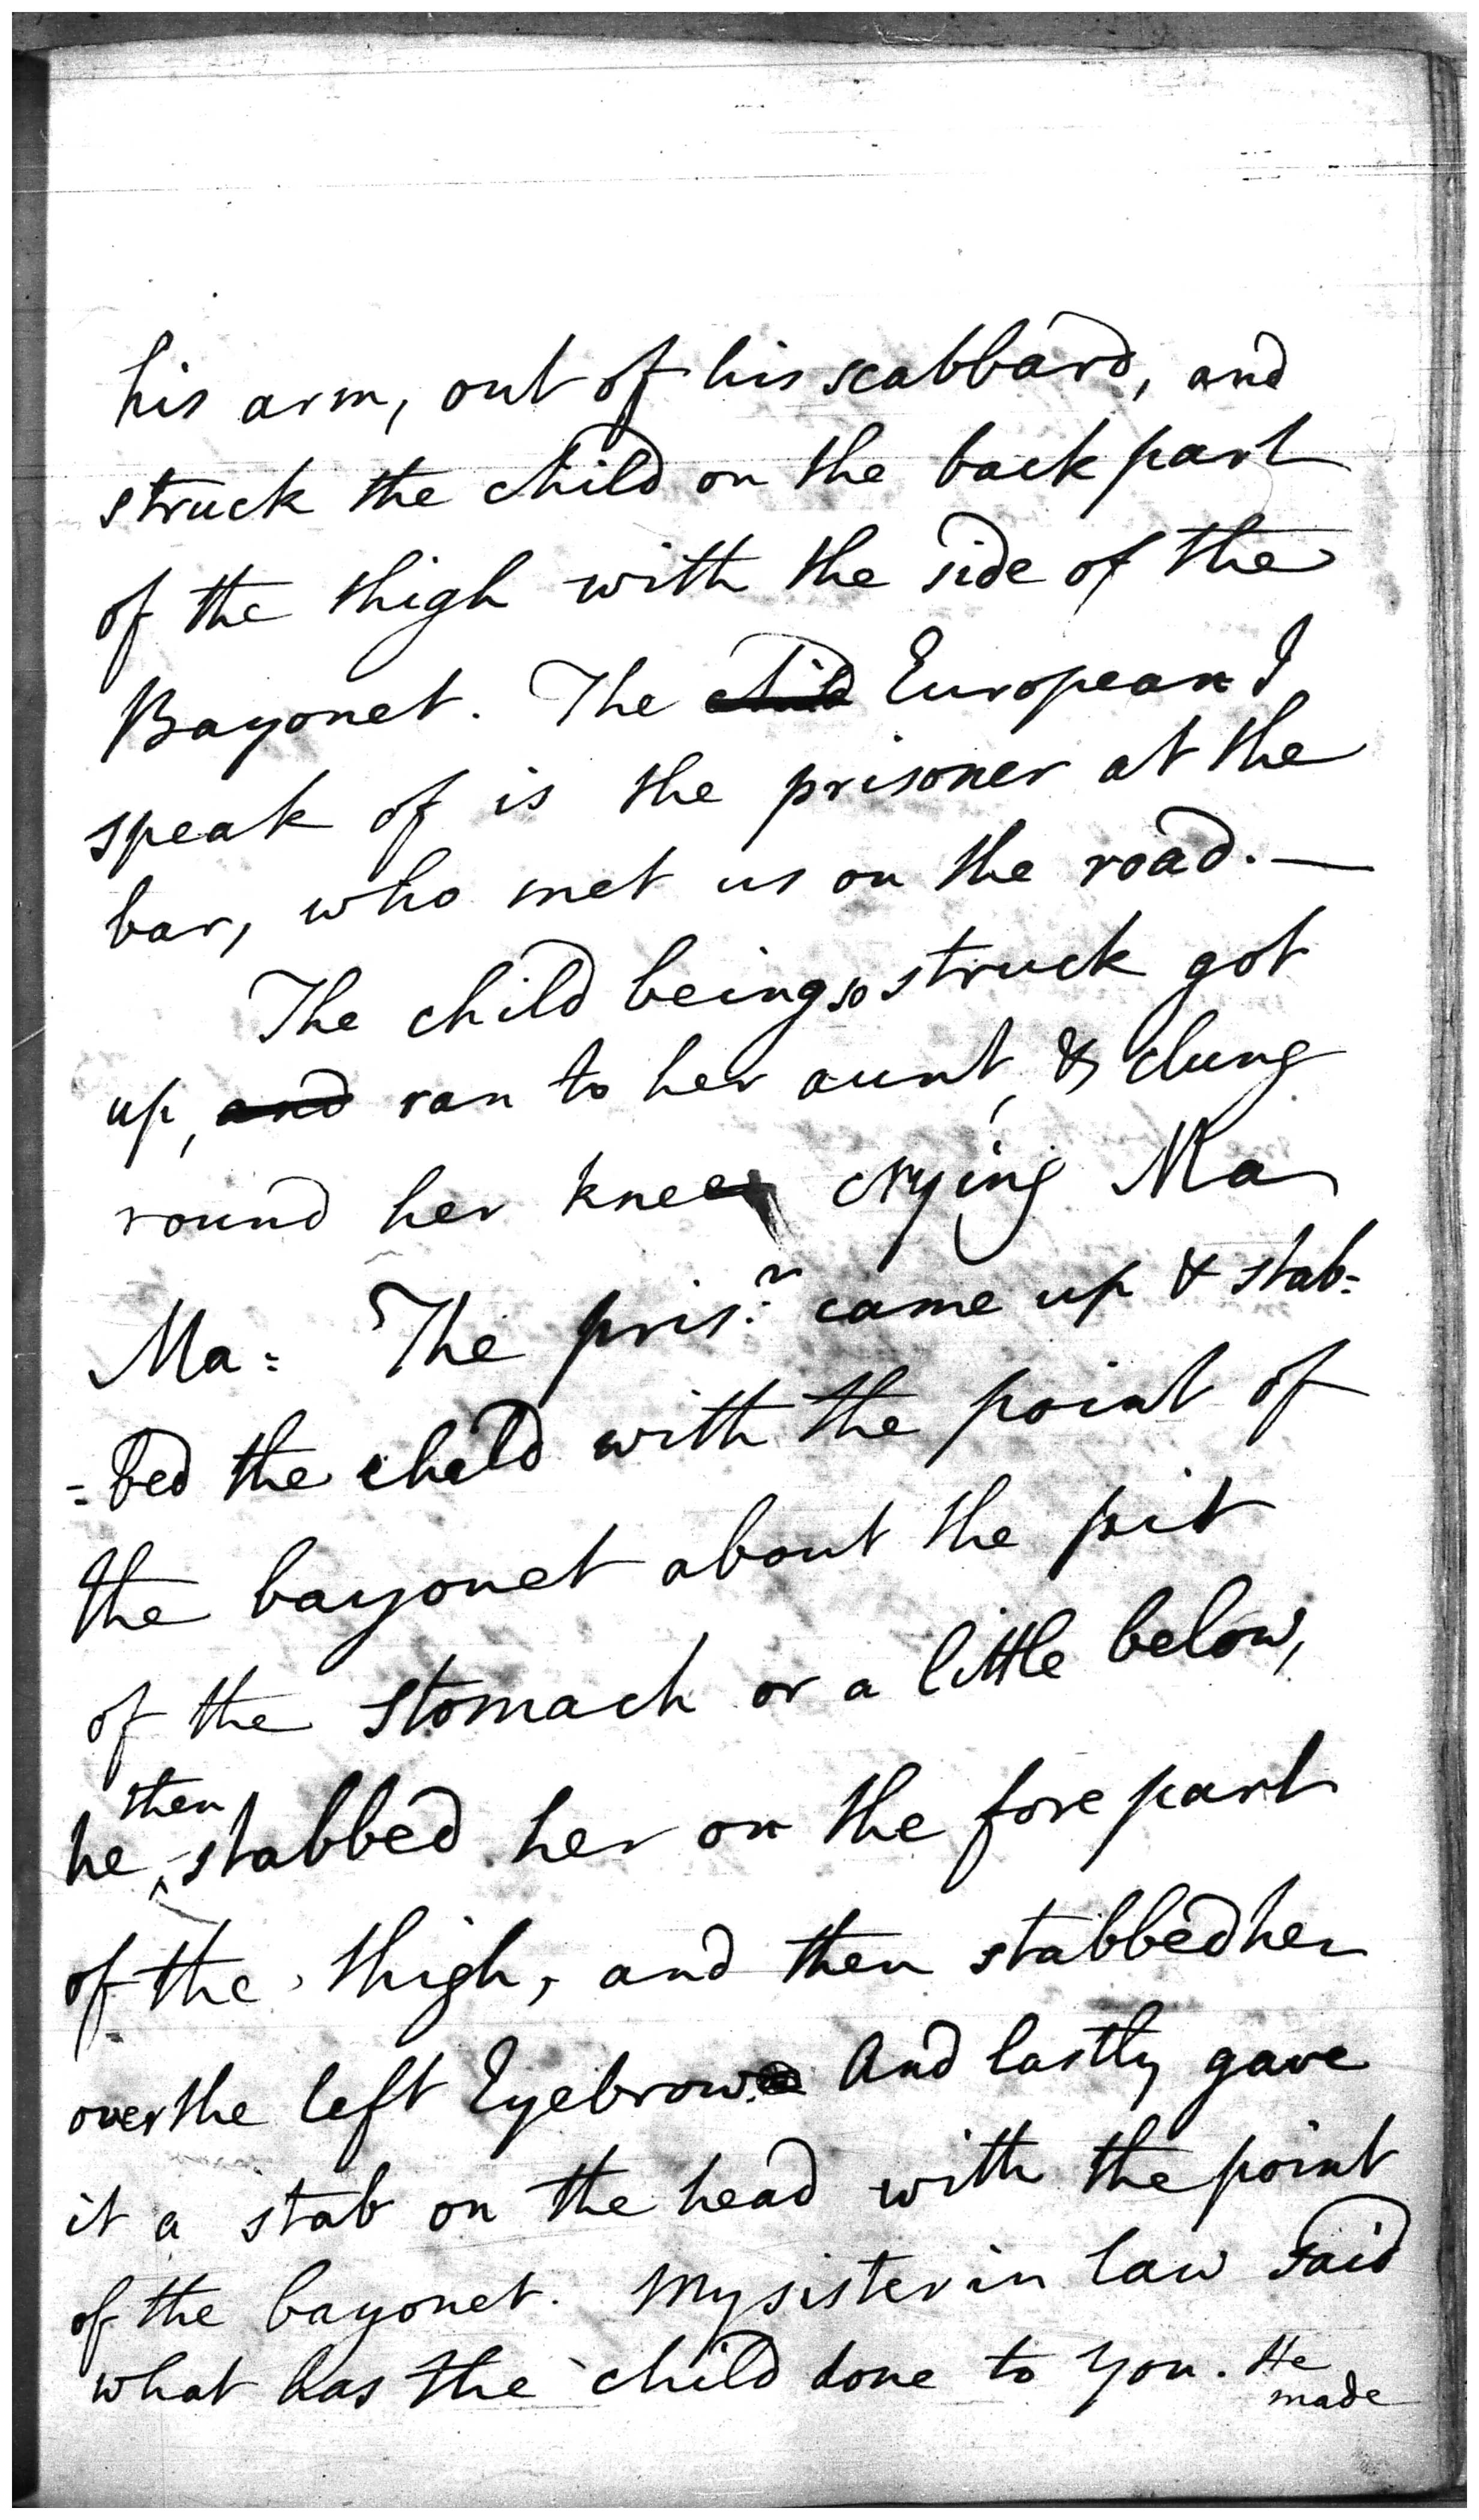 his arm, out of his scabbard, and
struck the child on the back part
of the thigh with the side of the
Bayonet. The child European I
speak of is the prisoner at the
bar, who met us on the road. —
The child being so struck got
up, and ran to her aunt, & clung
round her knees crying Ma
Ma = The pris.r came up & stab=
=bed the child with the point of
the bayonet about the pit
of the stomach or a little below,
then
he ^ stabbed her on the fore part
of the thigh, and then stabbed her
over the left Eyebrow And lastly gave
it a stab on the head with the point
of the bayonet. My sister in law said
what has the child done to you. He
made